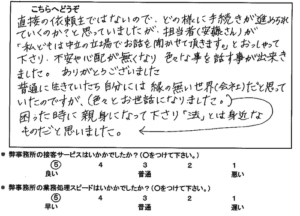 こちらへどうぞ
直接の依頼主ではないので、どの様に手続きが進められ
ていくのか?と思っていましたが、担当者(安藤さん)が
「私どもは中立の立場でお話を聞かせて頂きます。」とおっしゃって
下さり、不安や心配が無くなり色々な事を話す事が出来き
ました。ありがとうございました
普通に生きていたら自分には縁の無い世界(会社)だと思って
いたのですが、(色々とお世話になりました。)
困った時に親身になって下さり「法」とは身近な
ものだと思いました。
● 弊事務所の接客サービスはいかかでしたか?(○をつけて下さい。)
⑤ 4 3 2 1
良い 普通 悪い
● 弊事務所の業務処理スピードはいかかでしたか?(○をつけて下さい。)
⑤ 4 3 2 1
早い 普通 遅い